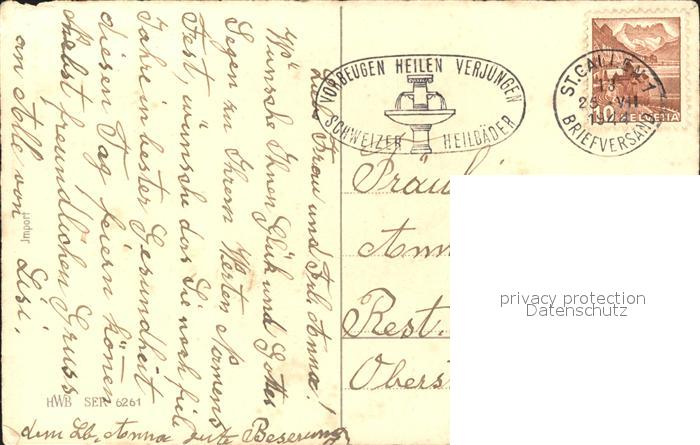 Liebe Frau und Frl. Anna!
Wünsche Ihnen Glük und Gottes
Segen zu Ihrem Werten Namens
Fest, wünsche das Sie noch file
Jahre in bester Gesundheit
diesen Tag feiern könen
Nebst freundlichen Gruss
an Alle von Lisi.
dem Lb. Anna gute Beserung
Import
HWB SER 6261
VORBEUGEN HEILEN VERJÜNGEN
SCHWEIZER HEILBÄDER
ST. GALLEN 1
13
25 VII
1944
BRIEFVERSAND
10 HELVETIA
Fräul
Ann
Rest.
Oberst
privacy protection
Datenschutz